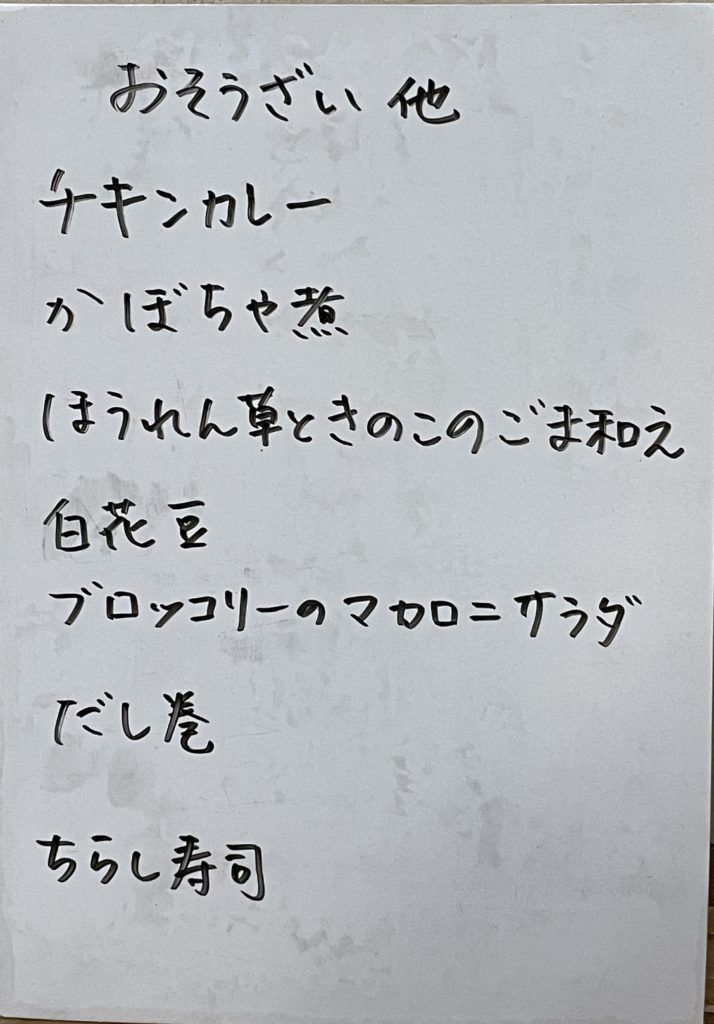 おそうざい 他
チキンカレー
かぼちゃ煮
ほうれん草ときのこのごま和え
白花豆
ブロッコリーのマカロニサラダ
だし巻
ちらし寿司